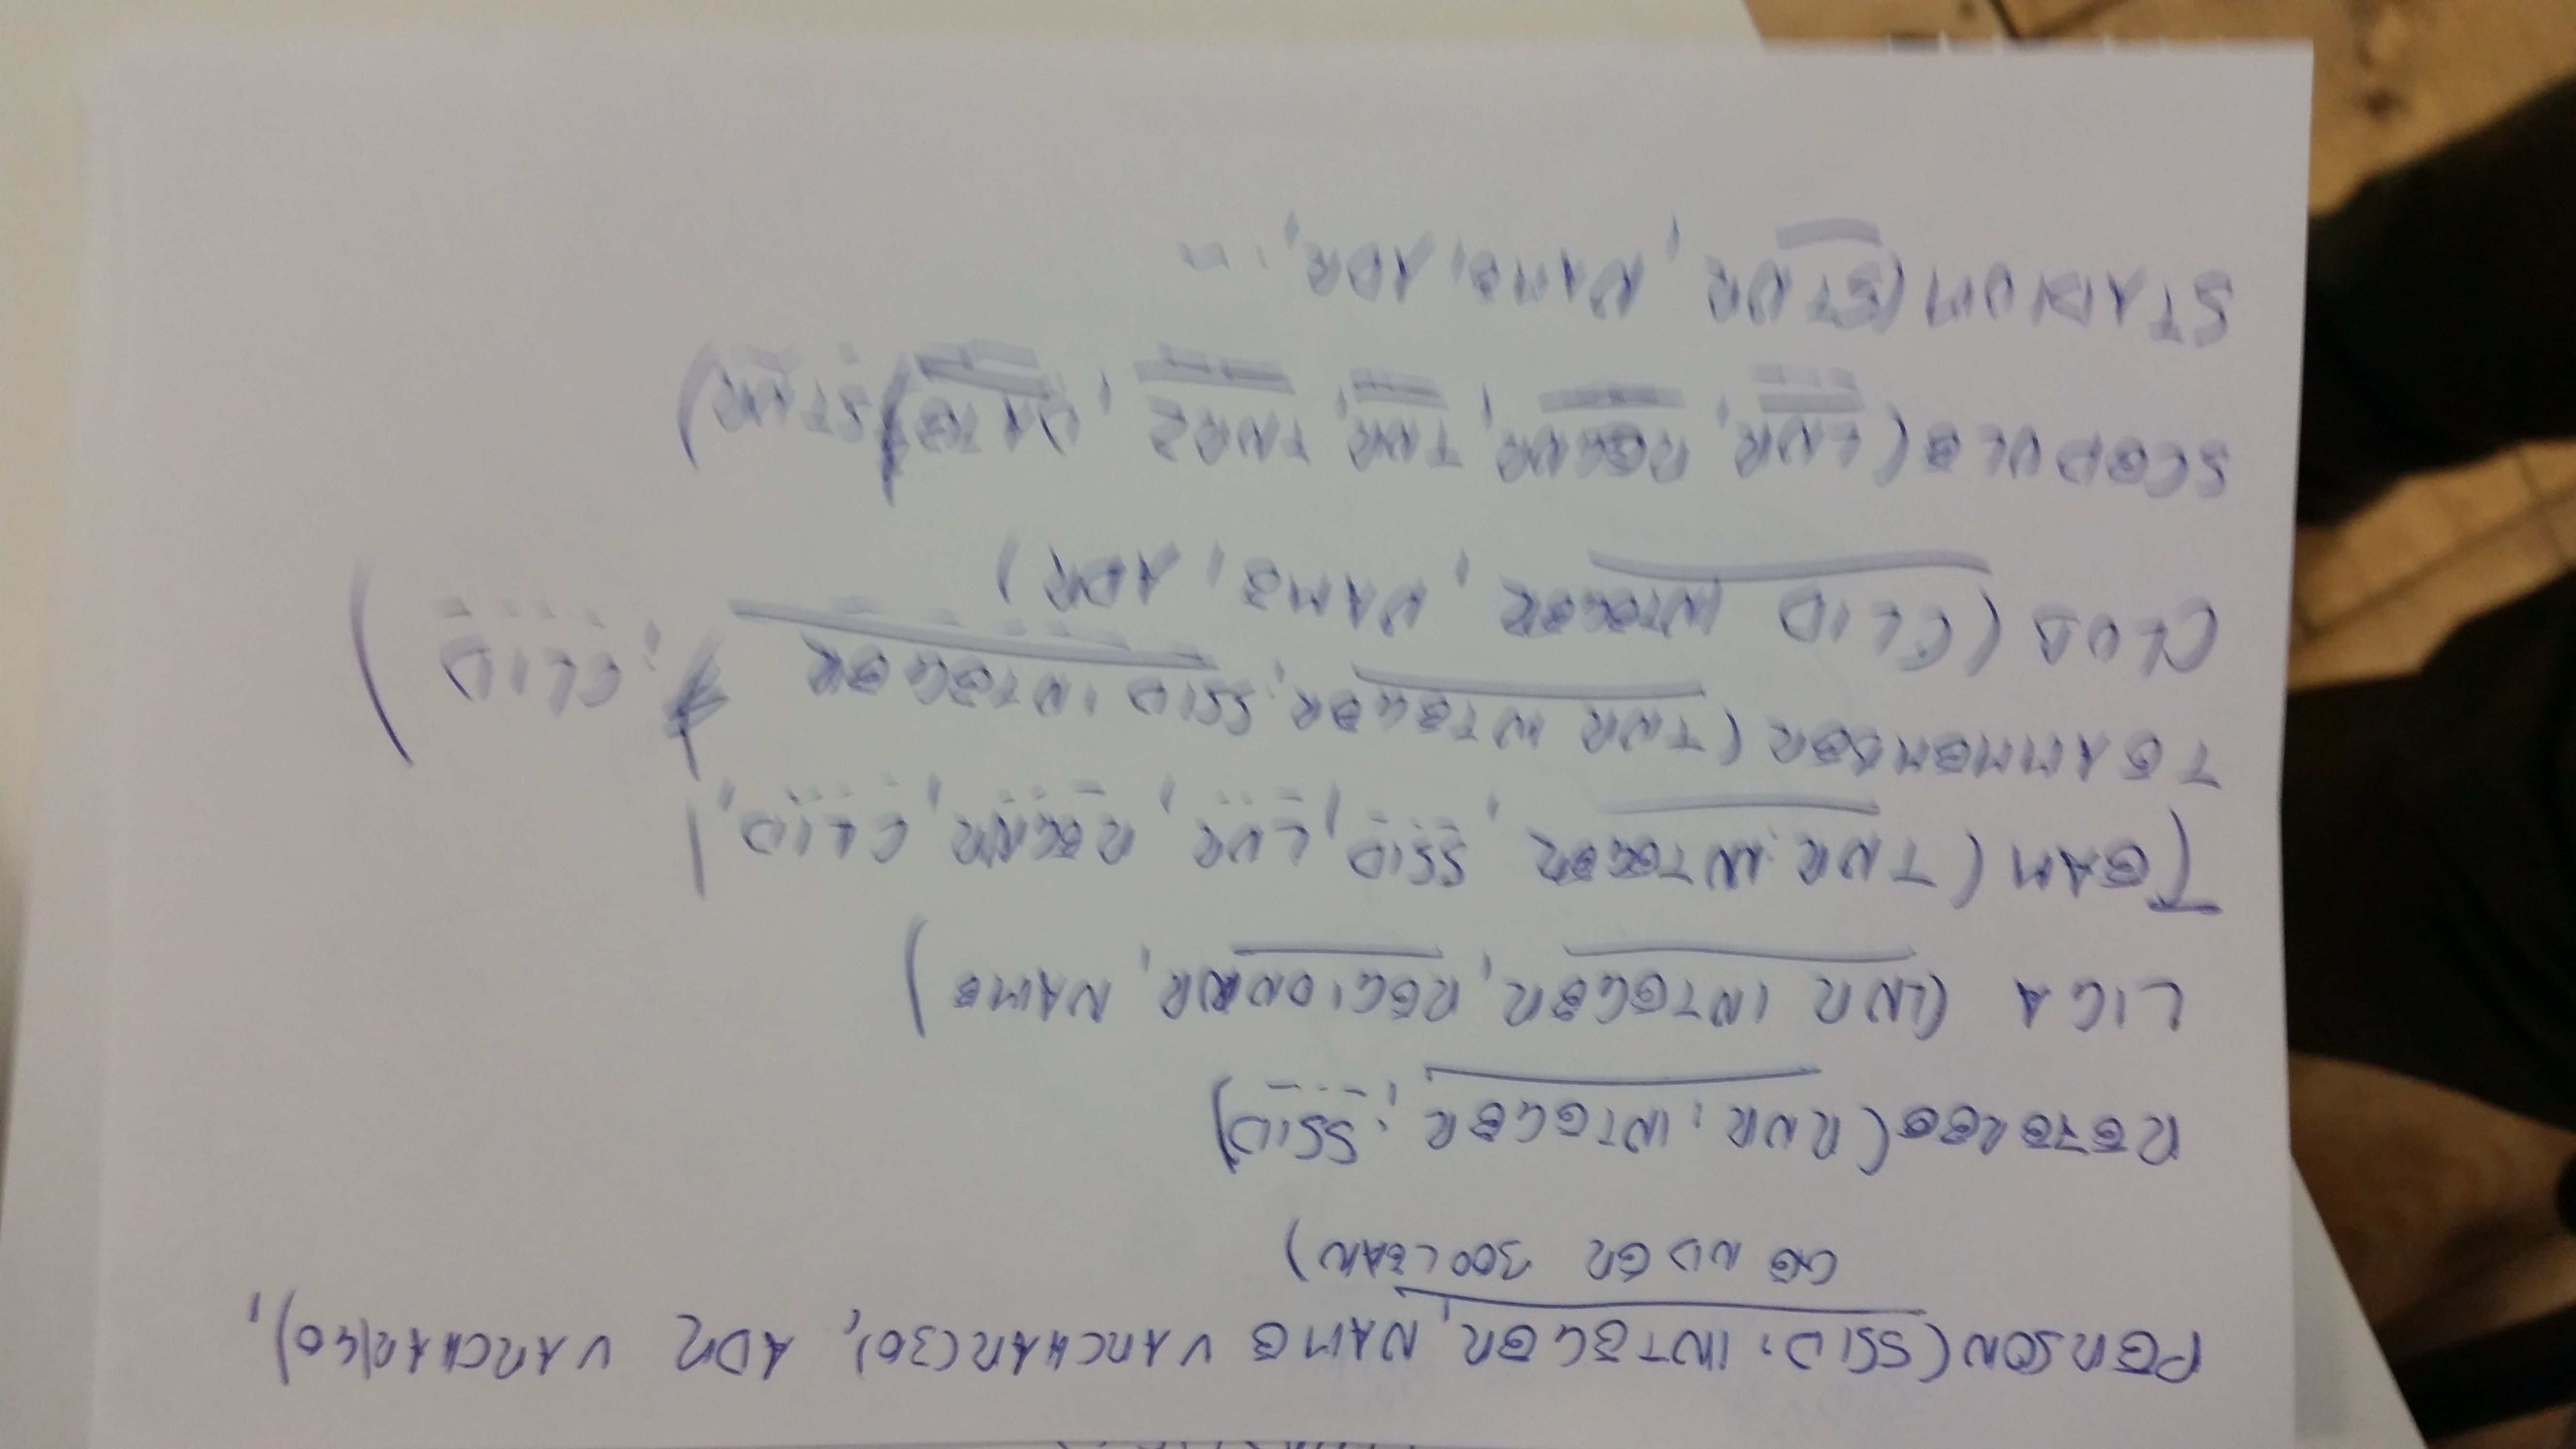 PERSON(SSID, INTEGER, NAME VARCHAR(30), ADR VARCHAR(40),
GENDER BOOLEAN)
REFEREE(RNR, INTEGER, SSID)
LIGA (LNR INTEGER, REGIONNR, NAME)
TEAM (TNR INTEGER, SSID, LNR, REGNR, CLID,)
TEAMMEMBER (TNR INTEGER, SSID INTEGER, CLID)
CLUB (CLID INTEGER, NAME, ADR)
(LNR, REGNR, TNR, TNR2, DATE, STNR)
STADIUM (STNR, NAME, ADR, ...